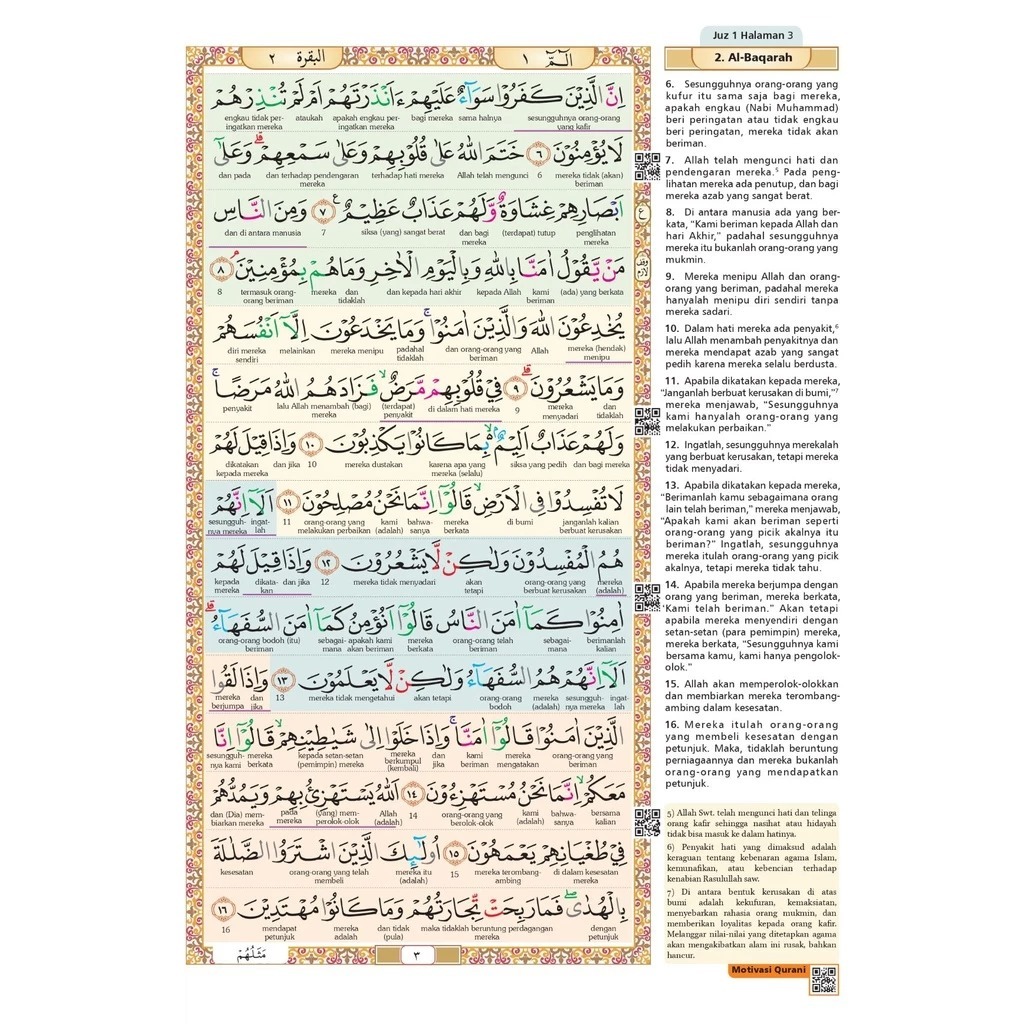 Juz 1 Halaman 3
البقرة ٢
الٓـمّٓ ١
2. Al-Baqarah
اِنَّ الَّذِيْنَ كَفَرُوْا سَوَاۤءٌ عَلَيْهِمْ ءَاَنْذَرْتَهُمْ اَمْ لَمْ تُنْذِرْهُمْ
sesungguhnya orang-orang yang kafir
sama halnya
bagi mereka
apakah engkau peringatkan mereka
ataukah
engkau tidak peringatkan mereka
لَا يُؤْمِنُوْنَ ٦ خَتَمَ اللّٰهُ عَلٰى قُلُوْبِهِمْ وَعَلٰى سَمْعِهِمْ ۗ وَعَلٰٓى
mereka tidak (akan) beriman
6
Allah telah mengunci
terhadap hati mereka
dan terhadap pendengaran mereka
dan pada
اَبْصَارِهِمْ غِشَاوَةٌ وَّلَهُمْ عَذَابٌ عَظِيْمٌ ࣖ ٧ وَمِنَ النَّاسِ
penglihatan mereka
(terdapat) tutup
dan bagi mereka
siksa (yang) sangat berat
7
dan di antara manusia
مَنْ يَّقُوْلُ اٰمَنَّا بِاللّٰهِ وَبِالْيَوْمِ الْاٰخِرِ وَمَا هُمْ بِمُؤْمِنِيْنَ ۘ ٨
(ada) yang berkata
kami beriman
kepada Allah
dan kepada hari akhir
dan tidaklah
mereka
termasuk orang-orang beriman
8
يُخٰدِعُوْنَ اللّٰهَ وَالَّذِيْنَ اٰمَنُوْا ۚ وَمَا يَخْدَعُوْنَ اِلَّآ اَنْفُسَهُمْ
mereka (hendak) menipu
Allah
dan orang-orang yang beriman
padahal tidaklah
mereka menipu
melainkan
diri mereka sendiri
وَمَا يَشْعُرُوْنَ ۗ ٩ فِيْ قُلُوْبِهِمْ مَّرَضٌ ۙ فَزَادَهُمُ اللّٰهُ مَرَضًا ۚ
dan tidaklah
mereka menyadari
9
di dalam hati mereka
(terdapat) penyakit
lalu Allah menambah (bagi) mereka
penyakit
وَلَهُمْ عَذَابٌ اَلِيْمٌ ۢ ۙ بِمَا كَانُوْا يَكْذِبُوْنَ ١٠ وَاِذَا قِيْلَ لَهُمْ
dan bagi mereka
siksa yang pedih
karena apa yang mereka (selalu)
mereka dustakan
10
dan jika
dikatakan kepada mereka
لَا تُفْسِدُوْا فِى الْاَرْضِ ۙ قَالُوْٓا اِنَّمَا نَحْنُ مُصْلِحُوْنَ ١١ اَلَآ اِنَّهُمْ
janganlah kalian berbuat kerusakan
di bumi
mereka berkata
bahwasanya
kami (adalah)
orang-orang yang melakukan perbaikan
11
ingatlah
sesungguhnya mereka
هُمُ الْمُفْسِدُوْنَ وَلٰكِنْ لَّا يَشْعُرُوْنَ ١٢ وَاِذَا قِيْلَ لَهُمْ
mereka (adalah)
orang-orang yang berbuat kerusakan
akan tetapi
mereka tidak menyadari
12
dan jika
dikatakan
kepada mereka
اٰمِنُوْا كَمَآ اٰمَنَ النَّاسُ قَالُوْٓا اَنُؤْمِنُ كَمَآ اٰمَنَ السُّفَهَاۤءُ ۗ
berimanlah kalian
sebagaimana
orang-orang telah beriman
mereka berkata
apakah kami akan beriman
sebagaimana
orang-orang bodoh (itu) beriman
اَلَآ اِنَّهُمْ هُمُ السُّفَهَاۤءُ وَلٰكِنْ لَّا يَعْلَمُوْنَ ١٣ وَاِذَا لَقُوا
ingatlah
sesungguhnya mereka
mereka (adalah)
orang-orang bodoh
akan tetapi
mereka tidak mengetahui
13
dan jika
mereka berjumpa
الَّذِيْنَ اٰمَنُوْا قَالُوْٓا اٰمَنَّا ۚ وَاِذَا خَلَوْا اِلٰى شَيٰطِيْنِهِمْ ۙ قَالُوْٓا اِنَّا
orang-orang yang beriman
mereka mengatakan
kami beriman
dan jika
mereka berkumpul (kembali)
kepada setan-setan (pemimpin) mereka
mereka berkata
sesungguhnya kami
مَعَكُمْ ۙ اِنَّمَا نَحْنُ مُسْتَهْزِءُوْنَ ١٤ اَللّٰهُ يَسْتَهْزِئُ بِهِمْ وَيَمُدُّهُمْ
bersama kalian
bahwasanya
kami (adalah)
orang-orang yang berolok-olok
14
Allah (adalah)
(yang) memperolok-olok
pada mereka
dan (Dia) membiarkan mereka
فِيْ طُغْيَانِهِمْ يَعْمَهُوْنَ ١٥ اُولٰۤىِٕكَ الَّذِيْنَ اشْتَرَوُا الضَّلٰلَةَ
di dalam kesesatan mereka
mereka terombang-ambing
15
mereka itu (adalah)
orang-orang yang telah membeli
kesesatan
بِالْهُدٰىۖ فَمَا رَبِحَتْ تِّجَارَتُهُمْ وَمَا كَانُوْا مُهْتَدِيْنَ ١٦
dengan petunjuk
maka tidaklah beruntung perdagangan mereka
dan tidak (pula)
mereka adalah
mendapat petunjuk
16
مَثَلُهُمْ
٣
ع
وقف لازم
6. Sesungguhnya orang-orang yang
kufur itu sama saja bagi mereka,
apakah engkau (Nabi Muhammad)
beri peringatan atau tidak engkau
beri peringatan, mereka tidak akan
beriman.
7. Allah telah mengunci hati dan
pendengaran mereka.⁵ Pada peng-
lihatan mereka ada penutup, dan bagi
mereka azab yang sangat berat.
8. Di antara manusia ada yang ber-
kata, “Kami beriman kepada Allah dan
hari Akhir,” padahal sesungguhnya
mereka itu bukanlah orang-orang yang
mukmin.
9. Mereka menipu Allah dan orang-
orang yang beriman, padahal mereka
hanyalah menipu diri sendiri tanpa
mereka sadari.
10. Dalam hati mereka ada penyakit,⁶
lalu Allah menambah penyakitnya dan
mereka mendapat azab yang sangat
pedih karena mereka selalu berdusta.
11. Apabila dikatakan kepada mereka,
“Janganlah berbuat kerusakan di bumi,”⁷
mereka menjawab, “Sesungguhnya
kami hanyalah orang-orang yang
melakukan perbaikan.”
12. Ingatlah, sesungguhnya merekalah
yang berbuat kerusakan, tetapi mereka
tidak menyadari.
13. Apabila dikatakan kepada mereka,
“Berimanlah kamu sebagaimana orang
lain telah beriman,” mereka menjawab,
“Apakah kami akan beriman seperti
orang-orang yang picik akalnya itu
beriman?” Ingatlah, sesungguhnya
mereka itulah orang-orang yang picik
akalnya, tetapi mereka tidak tahu.
14. Apabila mereka berjumpa dengan
orang yang beriman, mereka berkata,
“Kami telah beriman.” Akan tetapi
apabila mereka menyendiri dengan
setan-setan (para pemimpin) mereka,
mereka berkata, “Sesungguhnya kami
bersama kamu, kami hanya pengolok-
olok.”
15. Allah akan memperolok-olokkan
dan membiarkan mereka terombang-
ambing dalam kesesatan.
16. Mereka itulah orang-orang
yang membeli kesesatan dengan
petunjuk. Maka, tidaklah beruntung
perniagaannya dan mereka bukanlah
orang-orang yang mendapatkan
petunjuk.
5) Allah Swt. telah mengunci hati dan telinga
orang kafir sehingga nasihat atau hidayah
tidak bisa masuk ke dalam hatinya.
6) Penyakit hati yang dimaksud adalah
keraguan tentang kebenaran agama Islam,
kemunafikan, atau kebencian terhadap
kenabian Rasulullah saw.
7) Di antara bentuk kerusakan di atas
bumi adalah kekufuran, kemaksiatan,
menyebarkan rahasia orang mukmin, dan
memberikan loyalitas kepada orang kafir.
Melanggar nilai-nilai yang ditetapkan agama
akan mengakibatkan alam ini rusak, bahkan
hancur.
Motivasi Qurani